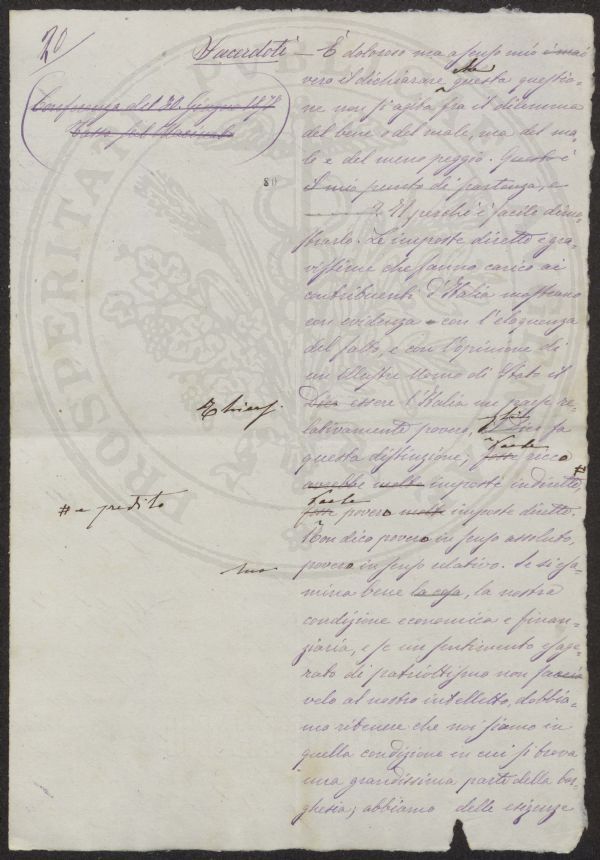 20
Conferenza del 30 Giugno 1878
Tassa sul Macinato
Sacerdoti - È doloroso ma a senso mio è mai
vero il dichiarare che questa questio=
ne non si agita fra il dilemma
del bene o del male, ma del ma=
le e del meno peggio. Questo è
il mio punto di partenza, e
? Il perchè è facile dimo=
strarlo. Le imposte dirette e gra=
vissime che fanno carico ai
contribuenti d'Italia mostrano
con evidenza e con l'eloquenza
del fatto, e con l'opinione di
un illustre Uomo di Stato il
Thiers.
essere l'Italia un paese re=
lativamente povero, fa
questa distinzione; Paese ricco
avrebbe molte imposte indirette, #
# e credito
Paese povero molte imposte dirette.
Non dico povero in senso assoluto,
povero in senso relativo. Se si esa=
mina bene la cosa, la nostra
condizione economica e finan=
ziaria, e se un sentimento esage=
rato di patriottismo non faccia
velo al nostro intelletto, dobbia=
mo ritenere che noi siamo in
quella condizione in cui si trova
una grandissima parte della bor=
ghesia; abbiamo delle esigenze
PROSPERITA